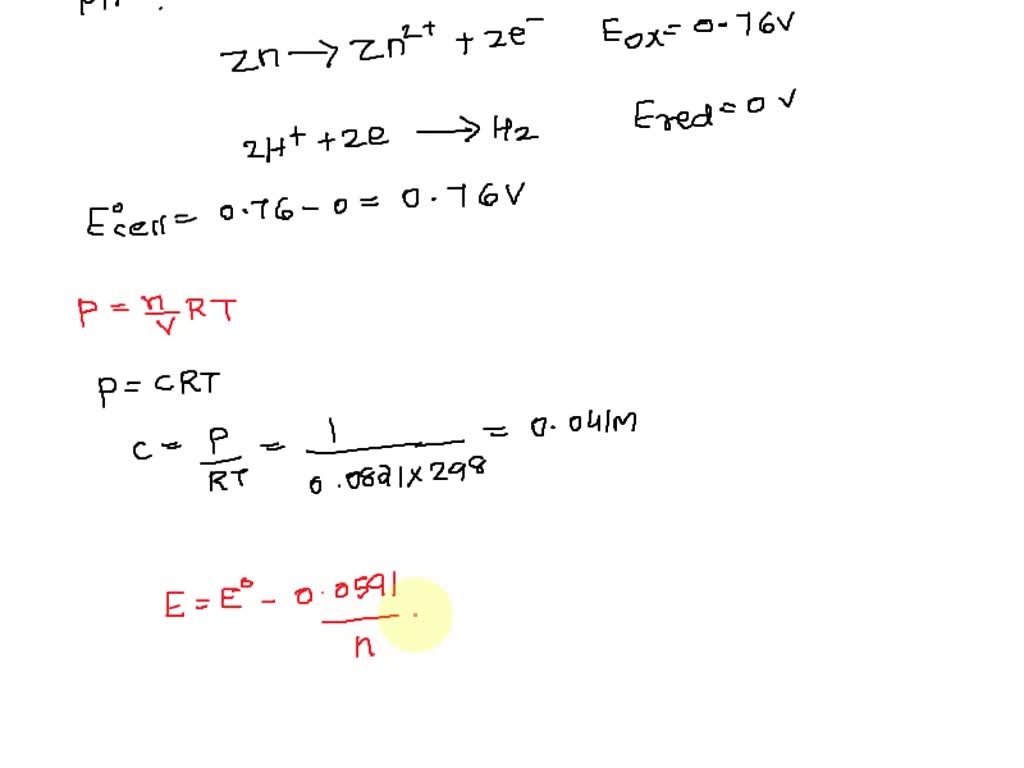 Zn → Zn²⁺ + 2e⁻ E_ox = 0.76V
2H⁺ + 2e → H₂ E_red = 0 V
E°_cell = 0.76 - 0 = 0.76V
P = n/V RT
P = CRT
C = P/RT = 1/(0.0821 × 298) = 0.041M
E = E° - 0.0591/n .